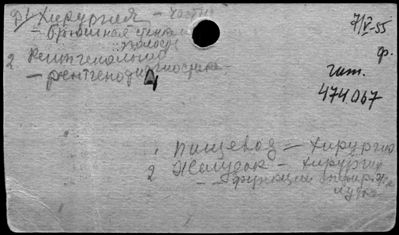 Хирургия — частн
— брюшная стенка
полость
2 Рентгенология
— рентгенодиагностика
7/V-55
ф.
чит.
474067
1 Пищевод — хирургия
2 Желудок — хирургия
— — функции